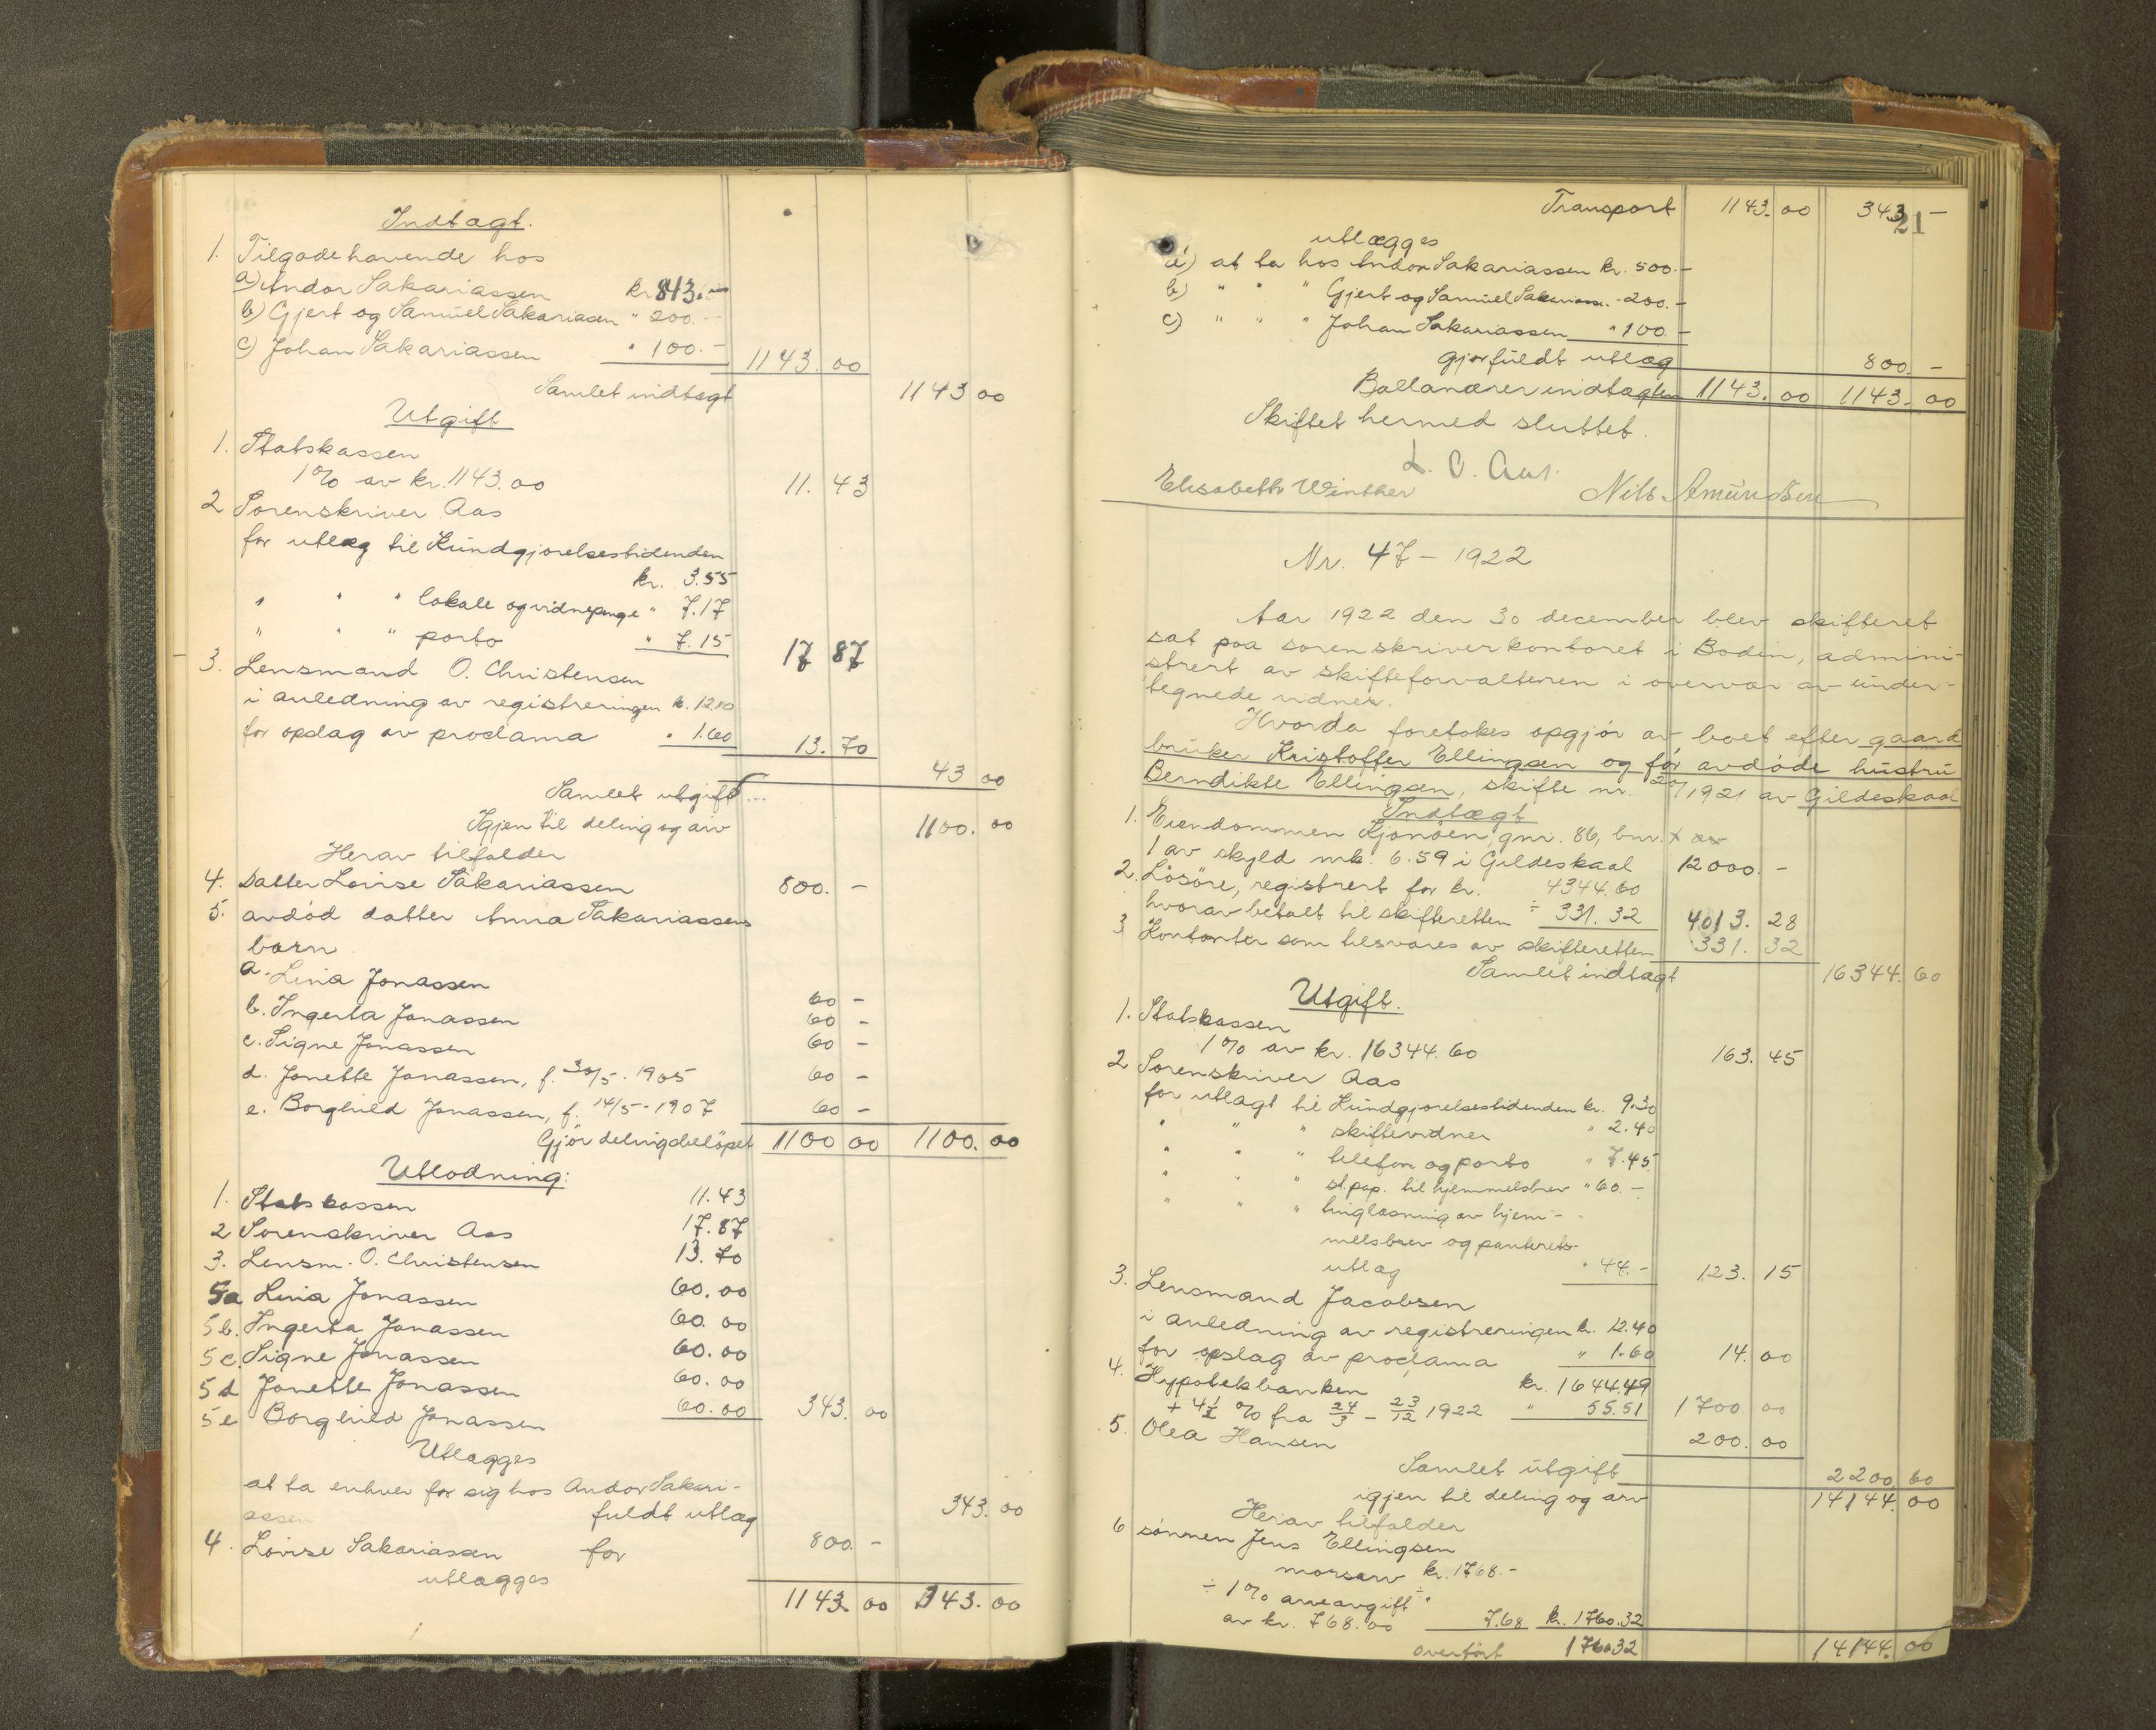 Indtægt.
1. Tilgodehavende hos
a) Andor Sakariassen kr. 843.-
b) Gjert og Samuel Sakariasen " 200.-
c) Johan Sakariassen " 100.- 1143.00
Samlet indtægt 1143 00
Utgift
1. Statskassen
1% av kr. 1143.00 11.43
2 Sorenskriver Aas
for utlæg til Kundgjørelsestidenden
kr. 3.55
" " " lokale og vidnepenge " 7.17
" " " porto " 7.15 17 87
3. Lensmand O. Christensen
i anledning av registreringen kr. 12.10
for opslag av proclama " 1.60 13.70
43 00
Samlet utgift...
Igjen til deling og arv 1100.00
Herav tilfalder
4. Datter Lovise Sakariassen 800.-
5. avdød datter Anna Sakariassens
barn
a. Lina Jonassen 60 -
b. Ingerta Jonassen 60 -
c. Signe Jonassen 60 -
d. Jonette Jonassen, f. 30/5-1905 60 -
e. Borghild Jonassen, f. 14/5-1907 60 -
Gjør delingsbeløpet 1100 00 1100.00
Utlodning:
1. Statskassen 11.43
2 Sorenskriver Aas 17.87
3. Lensm. O. Christensen 13.70
5a Lina Jonassen 60.00
5b. Ingerta Jonassen 60.00
5c. Signe Jonassen 60.00
5d Jonette Jonassen 60.00
5e Borghild Jonassen 60.00 343.00
Utlægges
at ta enhver for sig hos Andor Sakari-
assen fuldt utlæg 343.00
4. Lovise Sakariassen for 800.-
utlægges
1143.00 343.00
Transport 1143.00 343 -
21
utlægges
a) at ta hos Andor Sakariassen kr. 500.-
b) " " " Gjert og Samuel Sakariass. - 200.-
c) " " " Johan Sakariassen " 100 -
gjør fuldt utlæg 800.-
Ballancerer indtægten 1143.00 1143.00
Skiftet hermed sluttet.
L. O. Aas.
Elisabeth Winther Nils Amundsen
Nr. 47 - 1922
Aar 1922 den 30 december blev skifteret
sat paa sorenskriverkontoret i Bodin, admini-
strert av skifteforvalteren i overvær av under-
tegnede vidner.
Hvorda foretokes opgjør av boet efter gaard
bruker Kristoffer Ellingsen og før avdøde hustru
Berndikte Ellingsen, skifte nr. 20/1921 av Gildeskaal
Indtægt
1. Eiendommen Kjønøen, gnr. 86, bnr. x av
1 av skyld mk. 6.59 i Gildeskaal 12000.-
2. Løsøre, registrert for kr. 4344.60
hvorav betalt til skifteretten ÷ 331.32 4013.28
3 Kontanter som tilsvares av skifteretten 331.32
Samlet indtægt 16344.60
Utgift.
1. Statskassen
1% av kr. 16344.60 163.45
2 Sorenskriver Aas
for utlagt til Kundgjørelsestidenden kr. 9.30
" " " skiftevidner " 2.40
" " " telefon og porto " 7.45
" " " st.pap. til hjemmelsbrev " 60.-
" " " tinglæsning av hjem-
melsbrev og panterets-
utlæg " 44.- 123.15
3. Lensmand Jacobsen
i anledning av registreringen kr. 12.40
for opslag av proclama " 1.60 14.00
4. Hypotekbanken kr. 1644.49
+ 4½ % fra 24/3 - 23/12 1922 " 55.51 1700 00
5. Olea Hansen 200.00
Samlet utgift 2200 60
igjen til deling og arv 14144.00
Herav tilfalder
6 sønnen Jens Ellingsen
morsarv kr. 1768.-
÷ 1% arveavgift ÷
av kr. 768.00 7.68 kr. 1760.32
overført 1760 32 14144.00